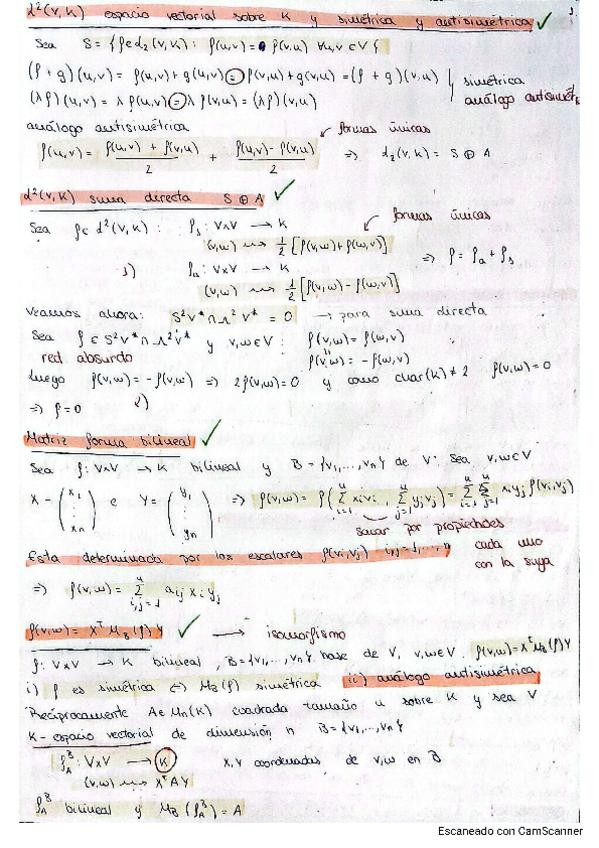 L²(V,K) espacio vectorial sobre K y simétrica y antisimétrica ✓
Sea S = { f ∈ L₂(V,K) : f(u,v) = f(v,u) ∀u,v ∈ V }
(f+g)(u,v) = f(u,v) + g(u,v) = f(v,u) + g(v,u) = (f+g)(v,u) } simétrica
(λf)(u,v) = λ f(u,v) = λ f(v,u) = (λf)(v,u) análogo antisimétr
análogo antisimétrica ↙ formas únicas
f(u,v) = (f(u,v) + f(v,u))/2 + (f(u,v) - f(v,u))/2 ⇒ L₂(V,K) = S ⊕ A
L²(V,K) suma directa S ⊕ A ✓
Sea f ∈ L²(V,K) : f_s : V×V → K ↙ formas únicas
(v,w) ⟿ 1/2 [f(v,w) + f(w,v)]
1) f_a : V×V → K ⇒ f = f_a + f_s
(v,w) ⟿ 1/2 [f(v,w) - f(w,v)]
Veamos ahora: S²V* ∩ Λ²V* = 0 → para suma directa
Sea f ∈ S²V* ∩ Λ²V* y v,w ∈ V : f(v,w) = f(w,v)
red absurdo f(v,w) = -f(w,v)
Luego f(v,w) = -f(v,w) ⇒ 2f(v,w) = 0 y como char(K) ≠ 2 f(v,w) = 0
⇒ f = 0 2)
Matriz forma bilineal ✓
Sea f : V×V → K bilineal y B = {v₁,...,vₙ} de V : Sea v,w ∈ V
X = (x₁ ⋮ xₙ) e Y = (y₁ ⋮ yₙ) ⇒ f(v,w) = f(∑ᵢ₌₁ⁿ xᵢvᵢ, ∑ⱼ₌₁ⁿ yⱼvⱼ) = ∑ᵢ₌₁ⁿ ∑ⱼ₌₁ⁿ xᵢyⱼ f(vᵢ,vⱼ)
sacar por propiedades
Esta determinada por los escalares f(vᵢ,vⱼ) i,j = 1,...,n cada uno
con la suya
⇒ f(v,w) = ∑ᵢ,ⱼ₌₁ⁿ aᵢⱼ xᵢ yⱼ
f(v,w) = XᵀM_B(f)Y ✓ → isomorfismo
f : V×V → K bilineal, B = {v₁,...,vₙ} base de V, v,w ∈ V, f(v,w) = XᵀM_B(f)Y
i) f es simétrica ⇔ M_B(f) simétrica ii) análogo antisimétrica
Recíprocamente A ∈ Mₙ(K) cuadrada tamaño n sobre K y sea V
K-espacio vectorial de dimensión n B = {v₁,...,vₙ}
f_A^B : V×V → K X,Y coordenadas de v,w en B
(v,w) ⟿ XᵀAY
f_A^B bilineal y M_B(f_A^B) = A
Escaneado con CamScanner